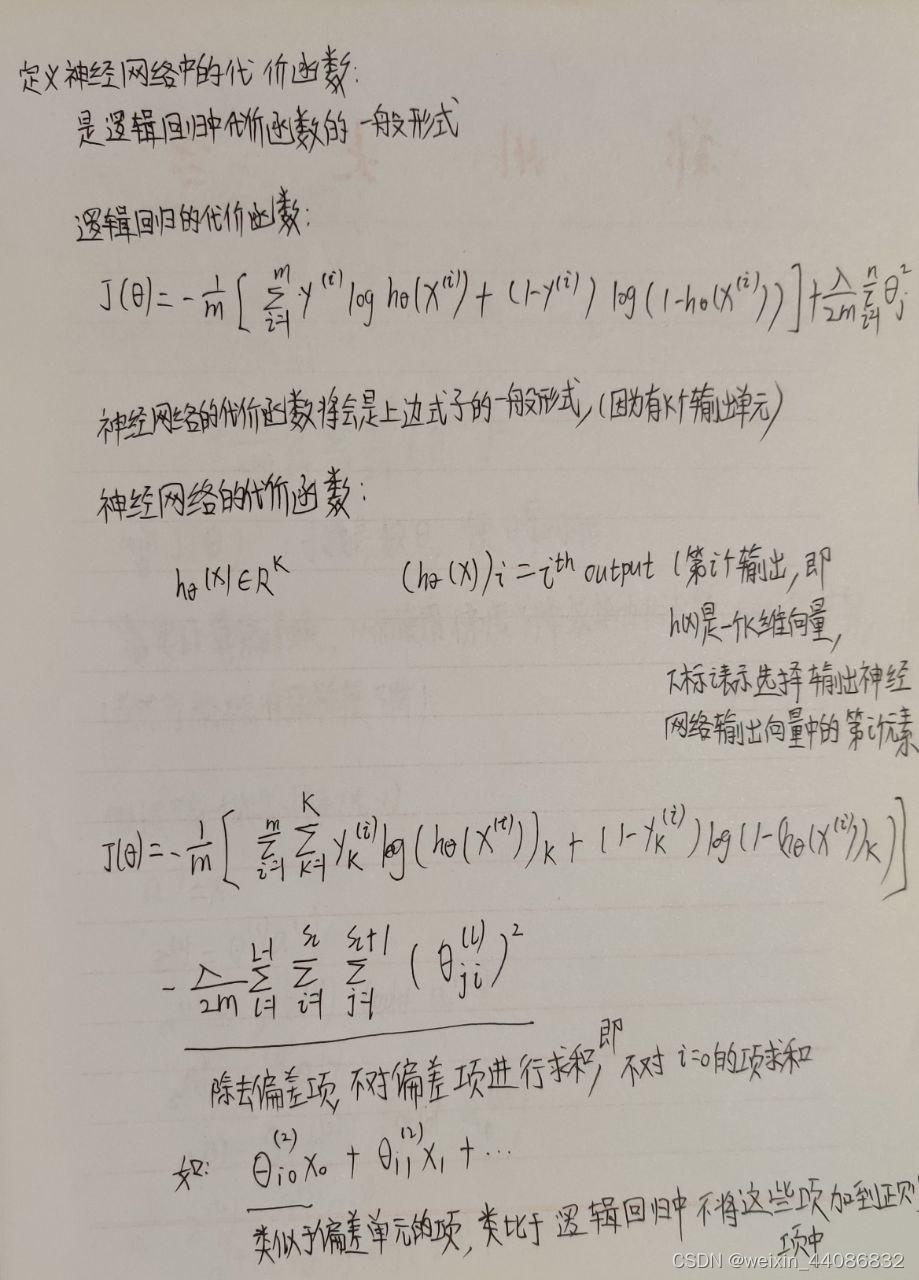 定义神经网络中的代价函数:
是逻辑回归中代价函数的一般形式
逻辑回归的代价函数:
J(θ)=-1/m[∑_{i=1}^{m} y^{(i)} log hθ(x^{(i)}) + (1-y^{(i)}) log(1-hθ(x^{(i)}))]+λ/2m ∑_{i=1}^{n} θ_j^2
神经网络的代价函数将会是上边式子的一般形式,(因为有K个输出单元)
神经网络的代价函数:
hθ(x)∈R^K (hθ(x))i=i^{th} output (第i个输出,即
h(x)是一个K维向量,
下标i表示选择输出神经
网络输出向量中的第i个元素
J(θ)=-1/m[∑_{i=1}^{m} ∑_{k=1}^{K} y_k^{(i)} log(hθ(x^{(i)}))_k + (1-y_k^{(i)}) log(1-(hθ(x^{(i)}))_k)]
-λ/2m ∑_{l=1}^{L-1} ∑_{i=1}^{sl} ∑_{j=1}^{sl+1} (θ_{ji}^{(l)})^2
除去偏差项,不对偏差项进行求和,即不对i=0的项求和
如: θ_{i0}^{(2)}x_0 + θ_{i1}^{(2)}x_1 + ...
类似于偏差单元的项,类比于逻辑回归中不将这些项加到正则
项中
CSDN @weixin_44086832